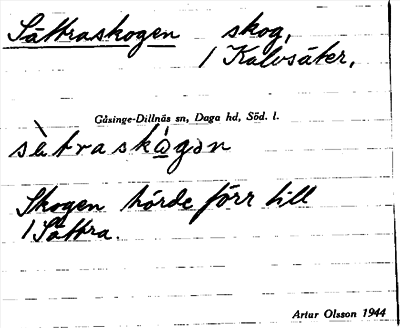 Sättraskogen skog,
/ Kalvsäter.
Gåsinge-Dillnäs sn, Daga hd, Söd. l.
sètraskògən
Skogen hörde förr till
/ Sättra.
Artur Olsson 1944